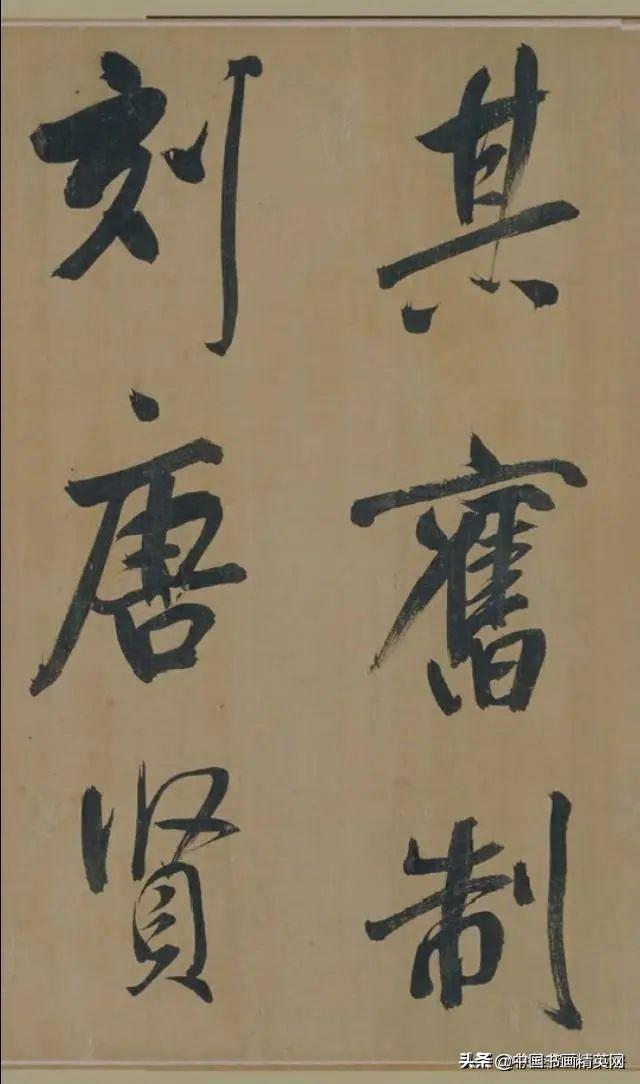 其舊制
刻唐賢
头条 @中国书画精英网